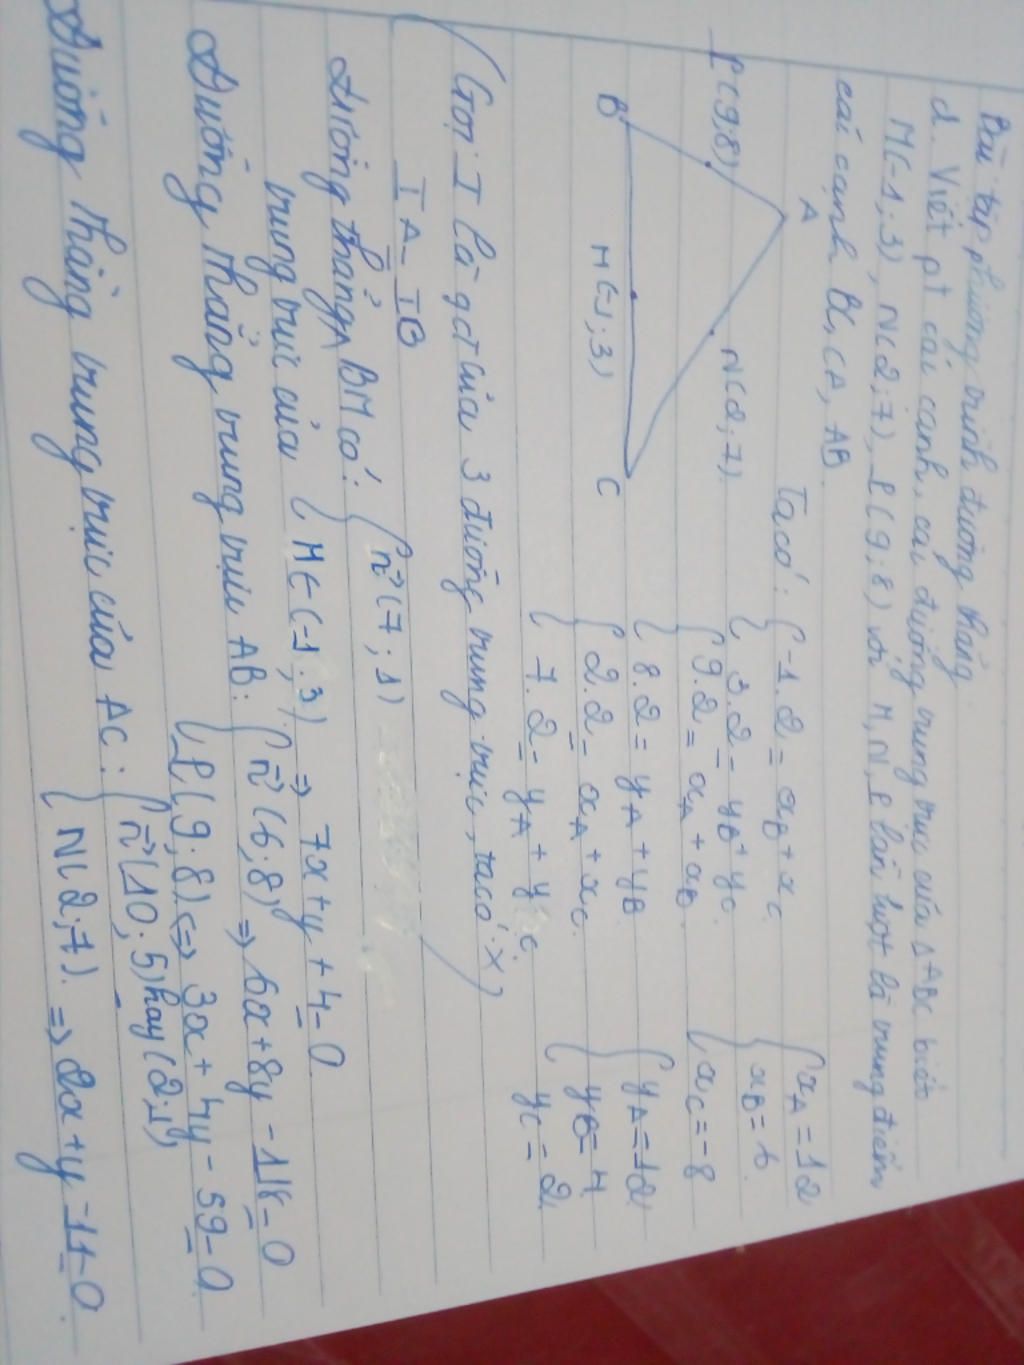 Bài tập phương trình đường thẳng.
d. Viết pt các cạnh, các đường trung trực của △ABC biết
M(-1;3), N(2;7), P(9;8) với M, N, P lần lượt là trung điểm
các cạnh BC, CA, AB.
A
P(9;8)
N(2;7)
B
M(-1;3)
C
Ta có: { -1.2 = xB + xC
3.2 = yB + yC.
{ 9.2 = xA + xB.
{ 8.2 = yA + yB
{ 2.2 = xA + xC.
{ 7.2 = yA + yC.
{ xA = 12
xB = 6.
xC = -8
{ yA = 12
yB = 4
yC = 2
(Gọi I là gđ của 3 đường trung trực, ta có: x)
IA = IB
Đường thẳng BM có: { n→(7;1)
trung trực của { M ∈ (-1;3) ⇒ 7x + y + 4 = 0
Đường thẳng trung trực AB: { n→(6;8) ⇒ 6x + 8y - 118 = 0
P(9;8) ⇔ 3x + 4y - 59 = 0
Đường thẳng trung trực của AC: { n→(10;5) hay (2;1)
N(2;7). ⇒ 2x + y - 11 = 0